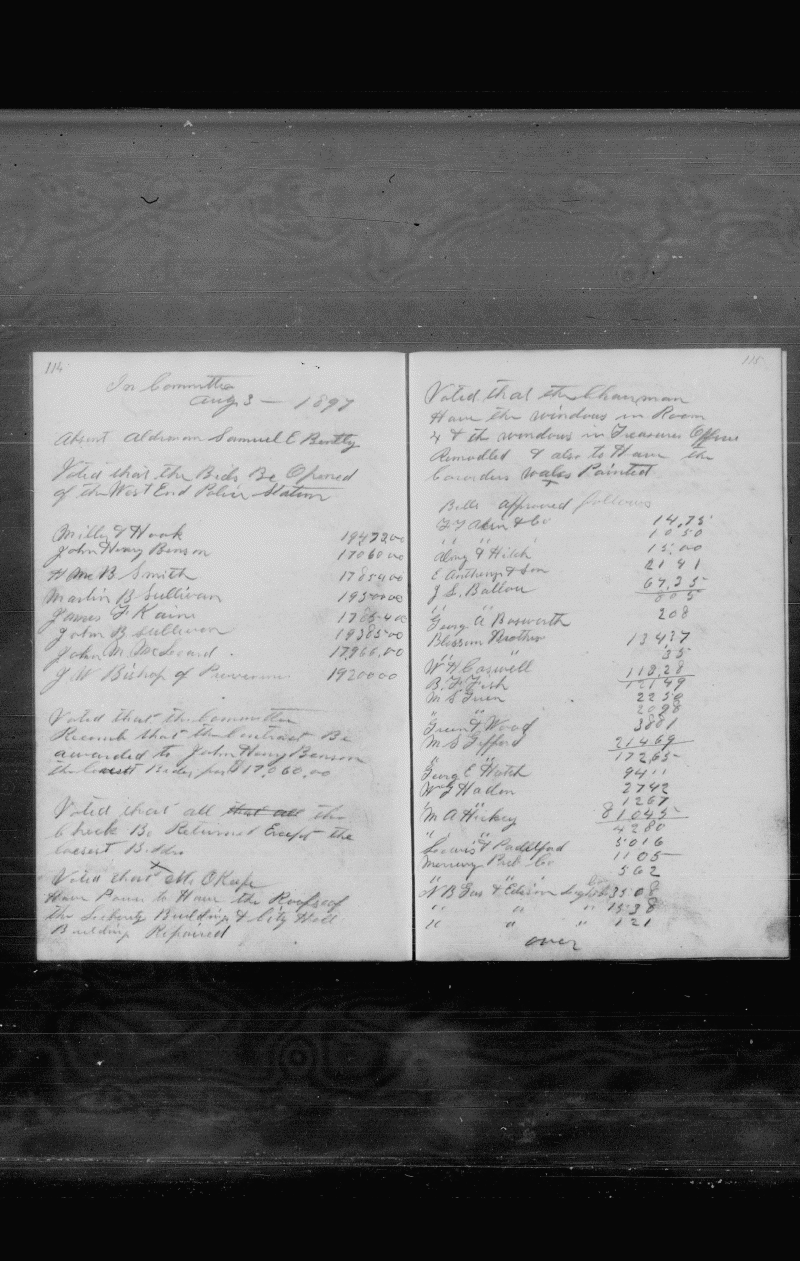 114
In Committee
Aug 3 — 1897
Absent Alderman Samuel E Bently
Voted that the Bids Be Opened
of the West End Police Station
Milley & Hook 19473,00
John Henry Benson 17060 00
H Mc B Smith 17854 00
Martin B Sullivan 19500 00
James F Kain 17854 00
John B Sullivan 19385 00
John M McLeoard . 17,966,00
J W Bishop of Providence 19200 00
Voted that the Committee
Recomb that the Contract Be
awarded to John Henry Benson
the lowest Bider for $17,060,00
Voted that all that all the
Check Be Returned Except the
lowest Bidder
Voted that Mr OKeefe
Have Power to Have the Roofs of
the Building & City Hall
Building Repaired
115
Voted that the Chairman
Have the windows in Room
4 & the windows in Treasures Office
Remodled & also to Have the
walls Painted
Bills approved follows
& Co 14,75
" " 10 50
& Hitch 15,00
E Anthony & Son 21 41
J S. Ballou 67,25
" " 805
Georg A Bosworth 208
Blossom Brother 134,37
" " 35
W H Caswell 118,28
B. F. Fish 12149
M S 2250
" " 2098
Green & Wood 3881
M S Gifford 21469
" " 17265
Georg E Hatch 9411
Wm J Haden 2742
" " 1267
M A Hickey 81045
" " 4280
& Padelford 5016
Mercury Pub Co 1105
" " 562
N B Gas & Edison Light Co 3508
" " " 1538
" " " 121
over